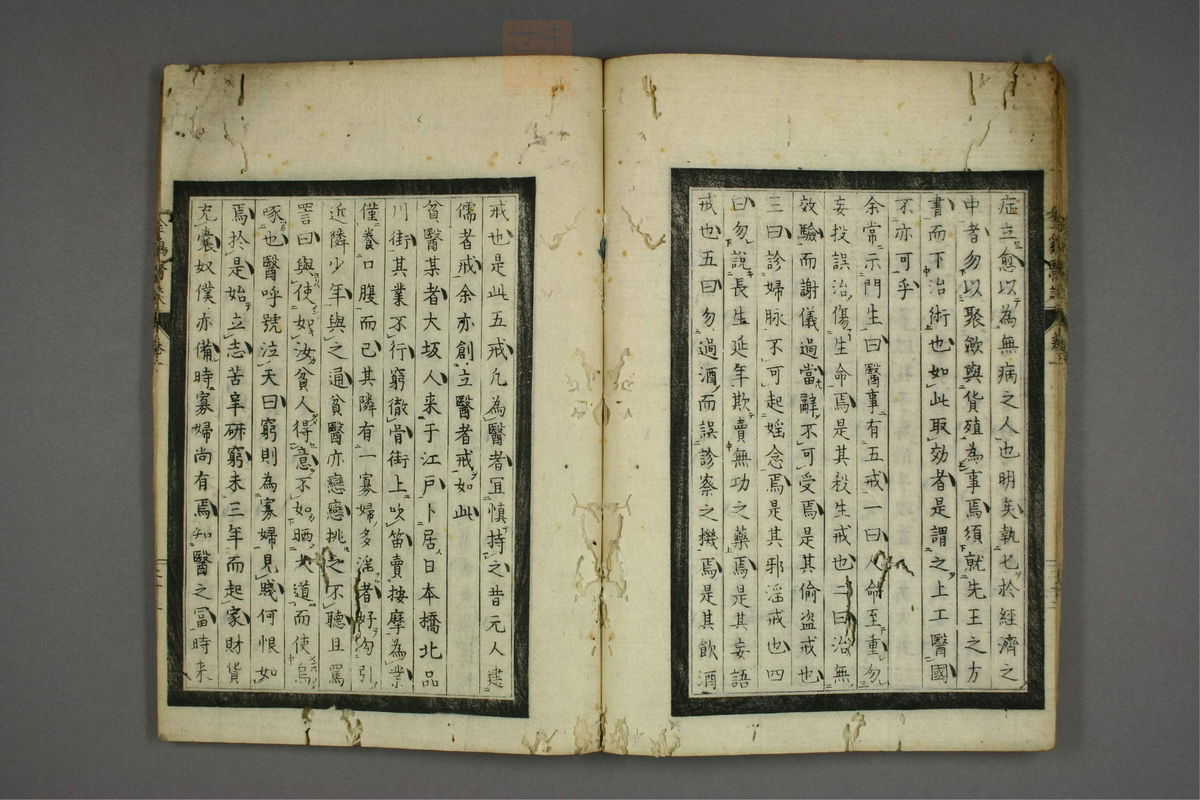 症立愈以為無病之人也明矣執匕於經濟之
中者勿以聚斂與貨殖為事焉須就先王之方
書而下治術也如此取効者是謂之上工醫國
不亦可乎
余常示門生曰醫事有五戒一曰人命至重勿
妄投誤治傷生命焉是其殺生戒也二曰治無
效驗而謝儀過當辭不可受焉是其偷盗戒也
三曰診婦脉不可起婬念焉是其邪淫戒也四
曰勿說長生延年欺賣無功之藥焉是其妄語
戒也五曰勿過酒而誤診察之機焉是其飲酒
戒也是此五戒凡為醫者宜慎持之昔元人建
儒者戒余亦創立醫者戒如此
貧醫某者大坂人来于江戸卜居日本橋北品
川街其業不行窮徹骨街上吹笛賣按摩為業
僅養口腹而已其隣有一寡婦多淫者好勾引
近隣少年與之通貧醫亦戀戀挑之不聽且罵
詈曰與使如汝貧人得意不如晒大道而使烏
啄也醫呼號泣天曰窮則為寡婦見賤何恨如
焉於是始立志苦辛研窮未三年而起家財貨
充囊奴僕亦備時寡婦尚有焉知醫之冨時来